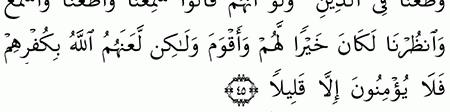 وَطَعْنًا فِى الدِّينِ وَلَوْ أَنَّهُمْ قَالُوا سَمِعْنَا وَأَطَعْنَا وَاسْمَعْ
وَانْظُرْنَا لَكَانَ خَيْرًا لَّهُمْ وَأَقْوَمَ وَلَٰكِن لَّعَنَهُمُ اللَّهُ بِكُفْرِهِمْ
فَلَا يُؤْمِنُونَ إِلَّا قَلِيلًا ﴿٤٥﴾